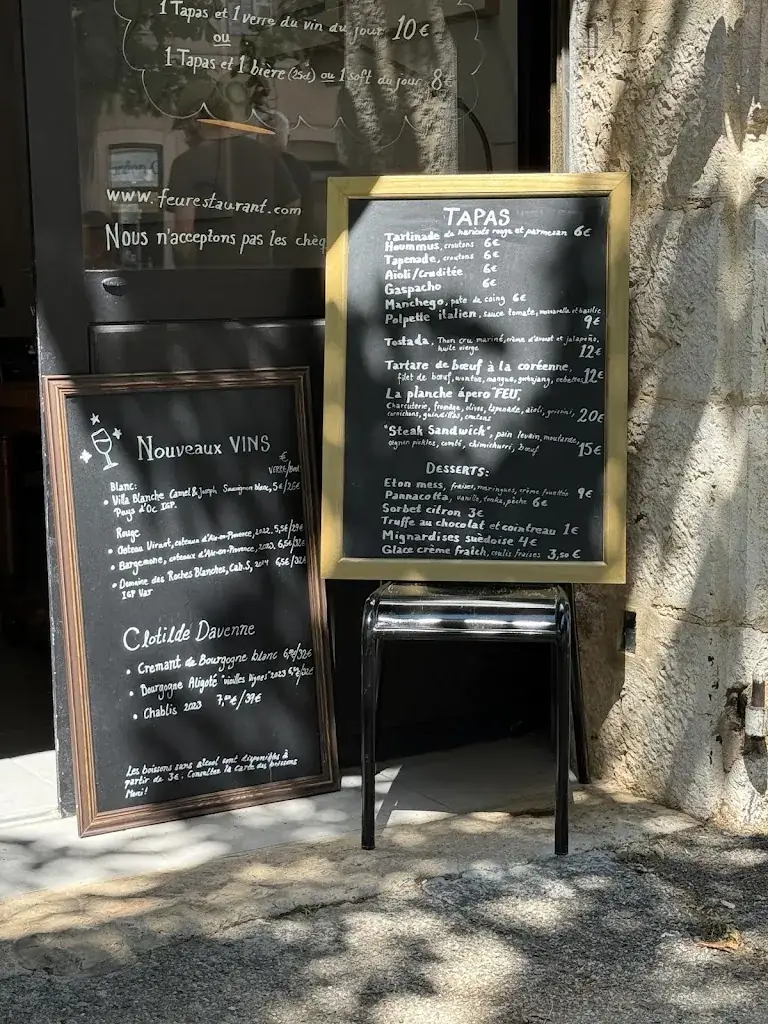 1 Tapas et 1 verre du vin du jour 10€
ou
1 Tapas et 1 bière (25cl) ou 1 soft du jour 8€
www.feurestaurant.com
Nous n'acceptons pas les chèq
TAPAS
Tartinade de haricots rouge et parmesan 6€
Hoummus, croutons 6€
Tapenade, croutons 6€
Aïoli/Cruditée 6€
Gaspacho 6€
Manchego, pate de coing 6€
Polpette italien, sauce tomate, mozzarella et basilic
9€
Tostada, Thon cru mariné, crème d'avocat et jalapeño,
huile vierge 12€
Tartare de bœuf à la coréenne,
filet de bœuf, wonton, mangue, gochujang, 12€
La planche apéro "FEU",
Charcuterie, fromage, olives, tapenade, aïoli, gressini,
cornichons, guindillas, croutons 20€
"Steak Sandwich", pain levain, moutarde,
oignon pickles, comté, chimichurri, bœuf 15€
DESSERTS:
Eton mess, fraises, meringues, crème fouettée 9€
Pannacotta, vanille, tonka, pêche 6€
Sorbet citron 3€
Truffe au chocolat et cointreau 1€
Mignardises suèdoise 4€
Glace crème fraich, coulis fraises 3,50€
Nouveaux VINS
€
VERRE/
Blanc:
• Villa Blanche Camel & Joseph Sauvignon blanc, 5€/25€
Pays d'Oc IGP.
Rouge
• Virant, coteaux d'Aix-en-Provence, 2022 5,5€/29€
• Bargemone, coteaux d'Aix-en-Provence, 2023 6,5€/32€
• Domaine des Roches Blanches, Cab.S, 2014 6,5€/32€
IGP Var
Clotilde Davenne
• Cremant de Bourgogne blanc
• Bourgogne Aligoté "vieilles vignes" 2023
• Chablis 2023 /39€
Les boissons sans alcool sont disponibles à
partir de 3€. Consultez la carte des boissons
Merci!